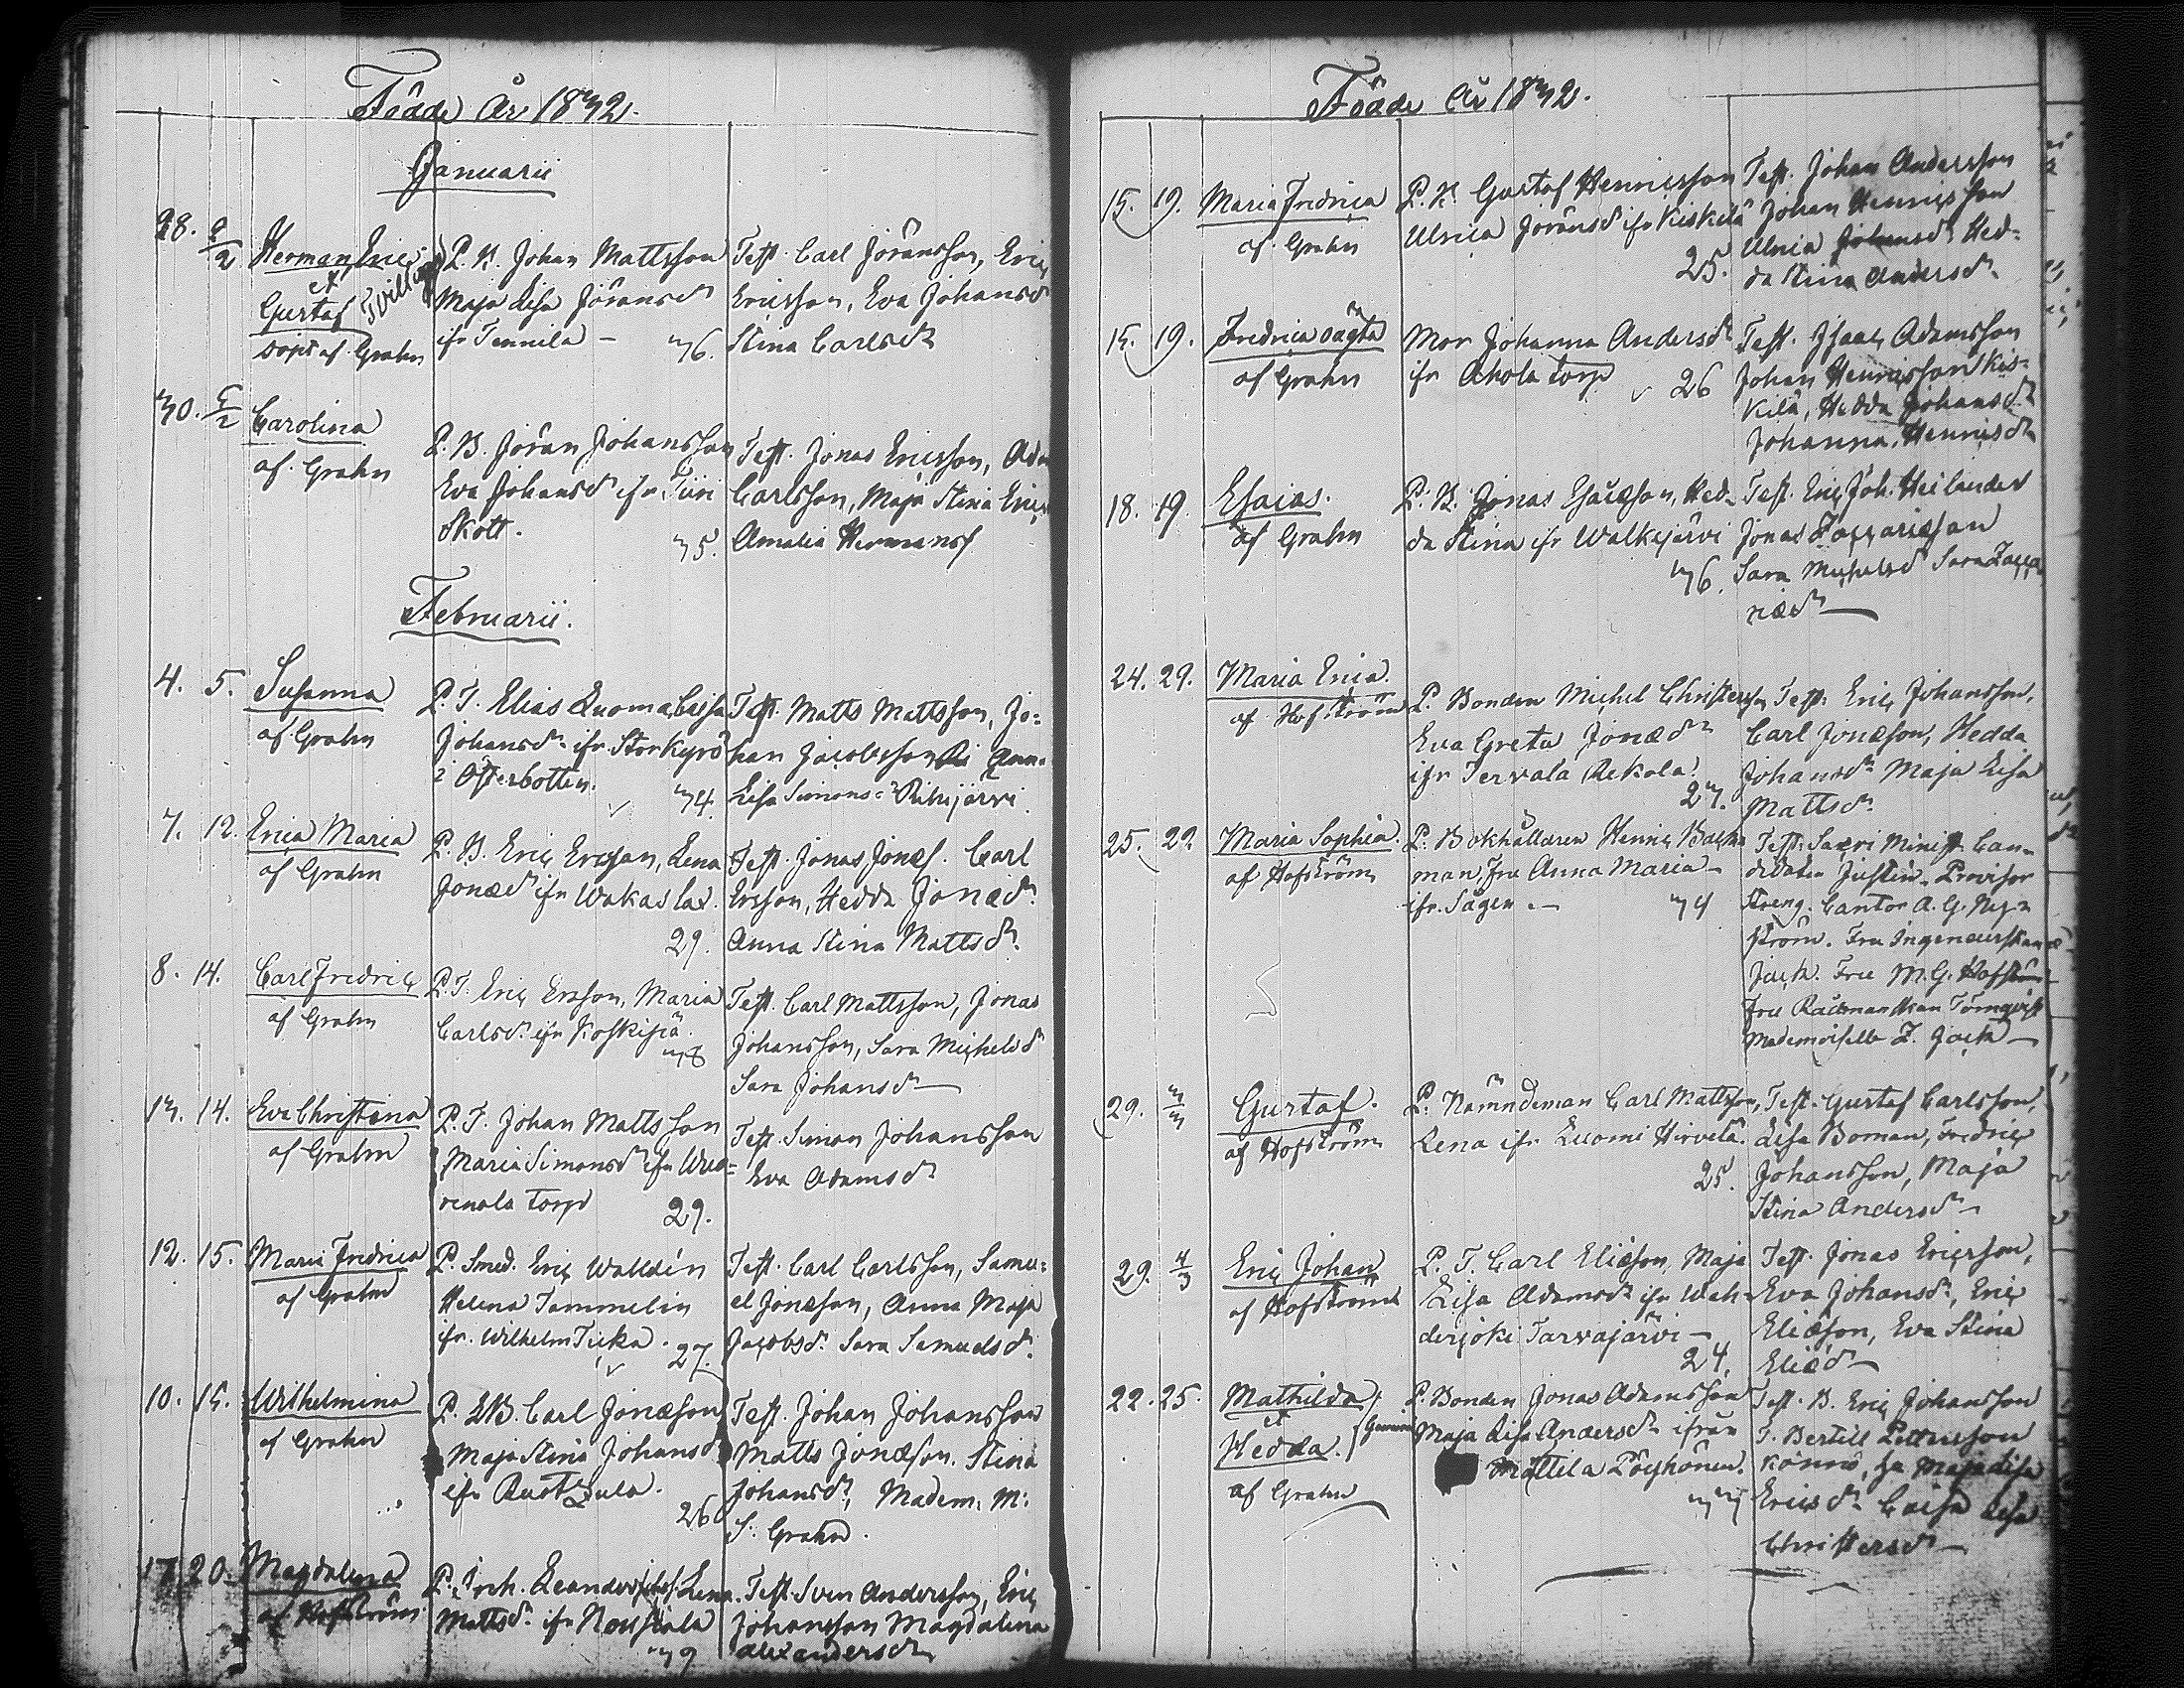 Födde År 1832.
Januarii
28. 2/2 Herman Eric
et
Gustaf Tvillingar
döpt af Grahn
P. B. Johan Mattsson
Maja Lisa Jöransdr
ifr Tennilä – 36.
Test. Carl Jöransson, Eric
Ericsson, Eva Johansd
Stina Carlsdr
30. 5/2 Carolina
af Grahn
P. B. Jöran Johansson
Eva Johansdr ifr Tiiri
Skott. 35.
Test. Jonas Ericsson, Adam
Carlsson, Maja Stina Erics
Amalia Hermansd
Februarii.
4. 5. Susanna
af Grahn
P. T. Elias Luoma, Caisa
Johansdr ifr Storkyrö
i Österbotten. 34.
Test. Matts Mattsson, Jo-
han Jacobsson Ri Anna
Lisa Simons Rihijärvi
7. 12. Erica Maria
af Grahn
P. B. Eric Ersson, Lena
Jonædr ifr Wakaslax. 29.
Test. Jonas Jonæs. Carl
Ersson, Hedda Jonædr.
Anna Stina Mattsdr.
8. 14. Carl Fredric
af Grahn
P. T. Eric Ersson, Maria
Carlsdr. ifr Koskipä. 38
Test. Carl Mattsson, Jonas
Johansson, Sara Michelsdr
Sara Johansdr –
13. 14. Eva Christina
af Grahn
P. T. Johan Mattsson
Maria Simonsdr ifr Wuo-
renala torp 29.
Test. Simon Johansson
Eva Adamsdr
12. 15. Maria Fredrica
af Grahn
P. Smed. Eric Walldén
Helena Tammelin
ifr. Wilhelm 27.
Test. Carl Carlsson, Samu-
el Jonæson, Anna Maja
Jacobsdr. Sara Samuelsdr.
10. 15. Wilhelmina
af Grahn
P. LB. Carl Jonæson
Maja Stina Johansdr
ifr Ruotzula. 26
Test. Johan Johansson
Matts Jonæson. Stina
Johansdr, Madem. M:
S: Grahn.
17. 20. Magdalena
af Hofström
P. Leander Lena
Mattsdr ifr Nousiala 39
Test. Sven Andersson, Eric
Johansson Magdalena
Alexandersdr
Födde År 1832.
15. 19. Maria Fredrica
af Grahn
P. B. Gustaf Henricsson
Ulrica Jöransdr ifr Kiskilä
25.
Test. Johan Andersson
Johan Henricsson
Ulrica Johansdr Hed-
da Stina Andersdr
15. 19. Fredrica oägta
af Grahn
Mor Johanna Andersdr
ifr Ahola torp 26
Test. Isaac Adamsson
Johan Henricsson Kis-
kilä, Hedda Johansdr
Johanna Henricsdr
18. 19. Esaias.
af Grahn
P. B. Jonas Esaiæson, Hed-
da Stina ifr Walkjärvi
36.
Test. Eric Joh. Heilander
Jonas Zacchariæson
Sara Michelsd Sara Zaccha
riædr –
24. 29. Maria Erica.
af Hofström
P. Bonden Michel Christersson
Eva Greta Jonædr
ifr Tervala Rekola.
27.
Test. Eric Johansson,
Carl Jonæson, Hedda
Johansdr Maja Lisa
Mattsdr.
25. 29 Maria Sophia.
af Hofström
P. Bokhållaren Henric Back-
man, Fru Anna Maria
ifr. Sågen. – 34
Test. Sacri Minist. Can-
didaten Justén. Provisor
Streng. Cantor A. G. Ny-
ström. Fru Ingenieurskan
Jack. Fru M. G. Hofström
Fru Rådmanskan Törnqvist
Mademoiselle Z. Jack –
29. 3/3 Gustaf.
af Hofström
P. Nämndeman Carl Mattsson,
Lena ifr Luomi Hirvelä.
25.
Test. Gustaf Carlsson,
Lisa Boman, Fredric
Johansson, Maja
Stina Andersdr –
29. 4/3 Eric Johan
af Hofström
P. T. Carl Eliæson, Maja
Lisa Adamsdr ifr Wah-
derjoki Tarvajärvi –
24.
Test. Jonas Ericsson,
Eva Johansdr, Eric
Eliæson, Eva Stina
Eliædr –
22. 25. Mathilda
et
Hedda. Gemini
af Grahn
P. Bonden Jonas Adamsson
Maja Lisa Andersdr ifrån
Mattila Pöyhönen.
33
Test. B. Eric Johansson
T. Bertill Pettersson
Könnö, Maja Lisa
Ericsdr Caisa Lisa
Christersdr –